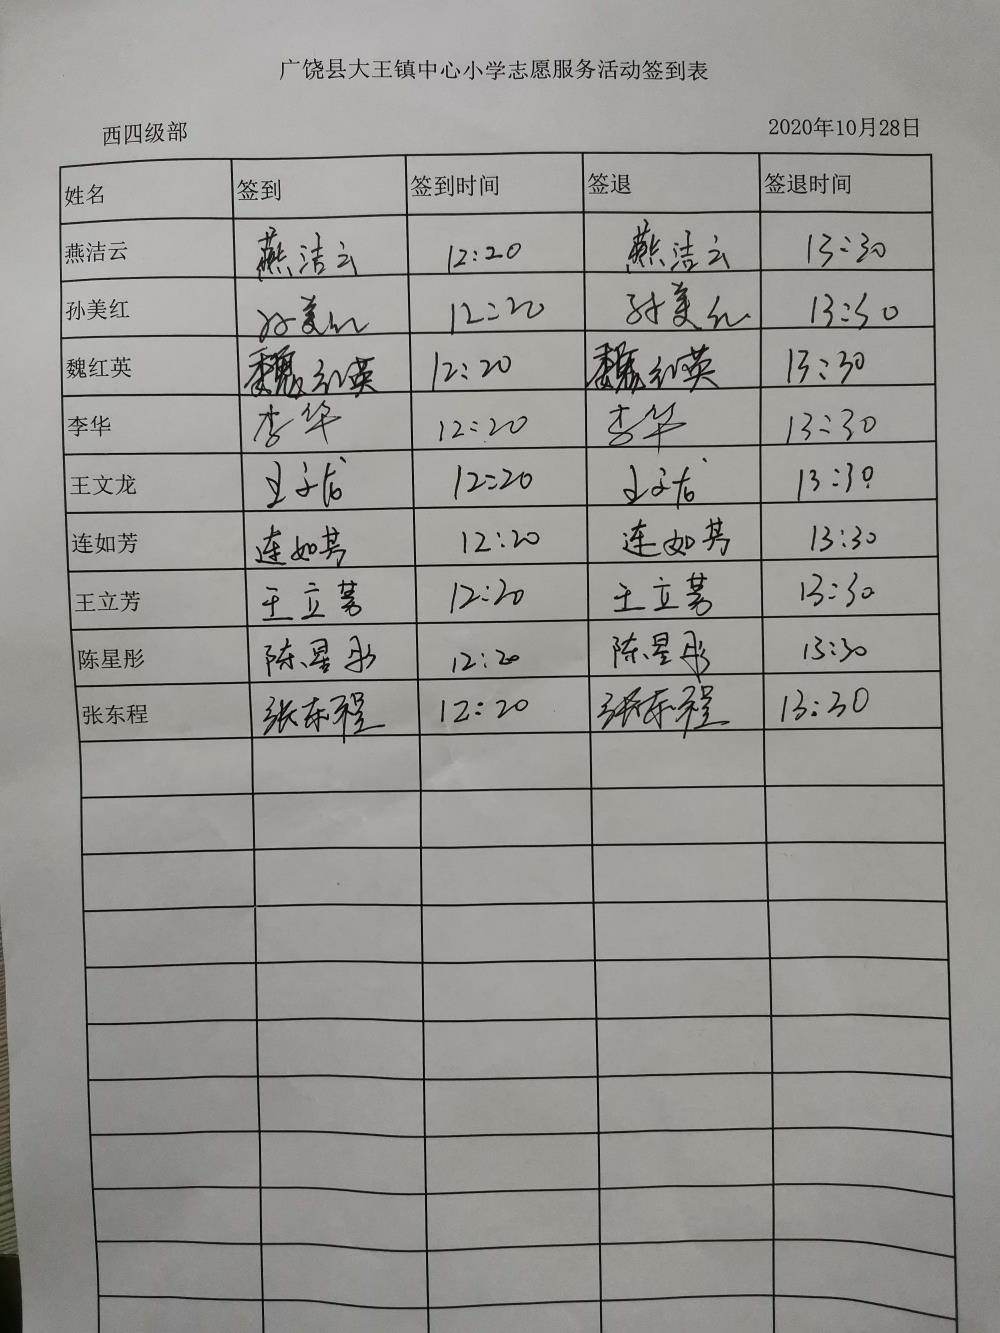 广饶县大王镇中心小学志愿服务活动签到表
西四级部 2020年10月28日
姓名 签到 签到时间 签退 签退时间
燕洁云 燕洁云 12:20 燕洁云 13:30
孙美红 孙美红 12:20 孙美红 13:30
魏红英 魏红英 12:20 魏红英 13:30
李华 李华 12:20 李华 13:30
王文龙 王文龙 12:20 王文龙 13:30
连如芳 连如芳 12:20 连如芳 13:30
王立芳 王立芳 12:20 王立芳 13:30
陈星彤 陈星彤 12:20 陈星彤 13:30
张东程 张东程 12:20 张东程 13:30